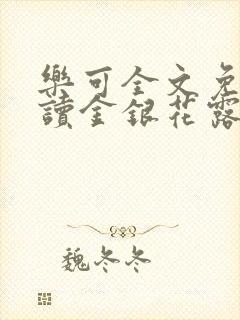 樂可全文免
讀金銀花露
魏冬冬